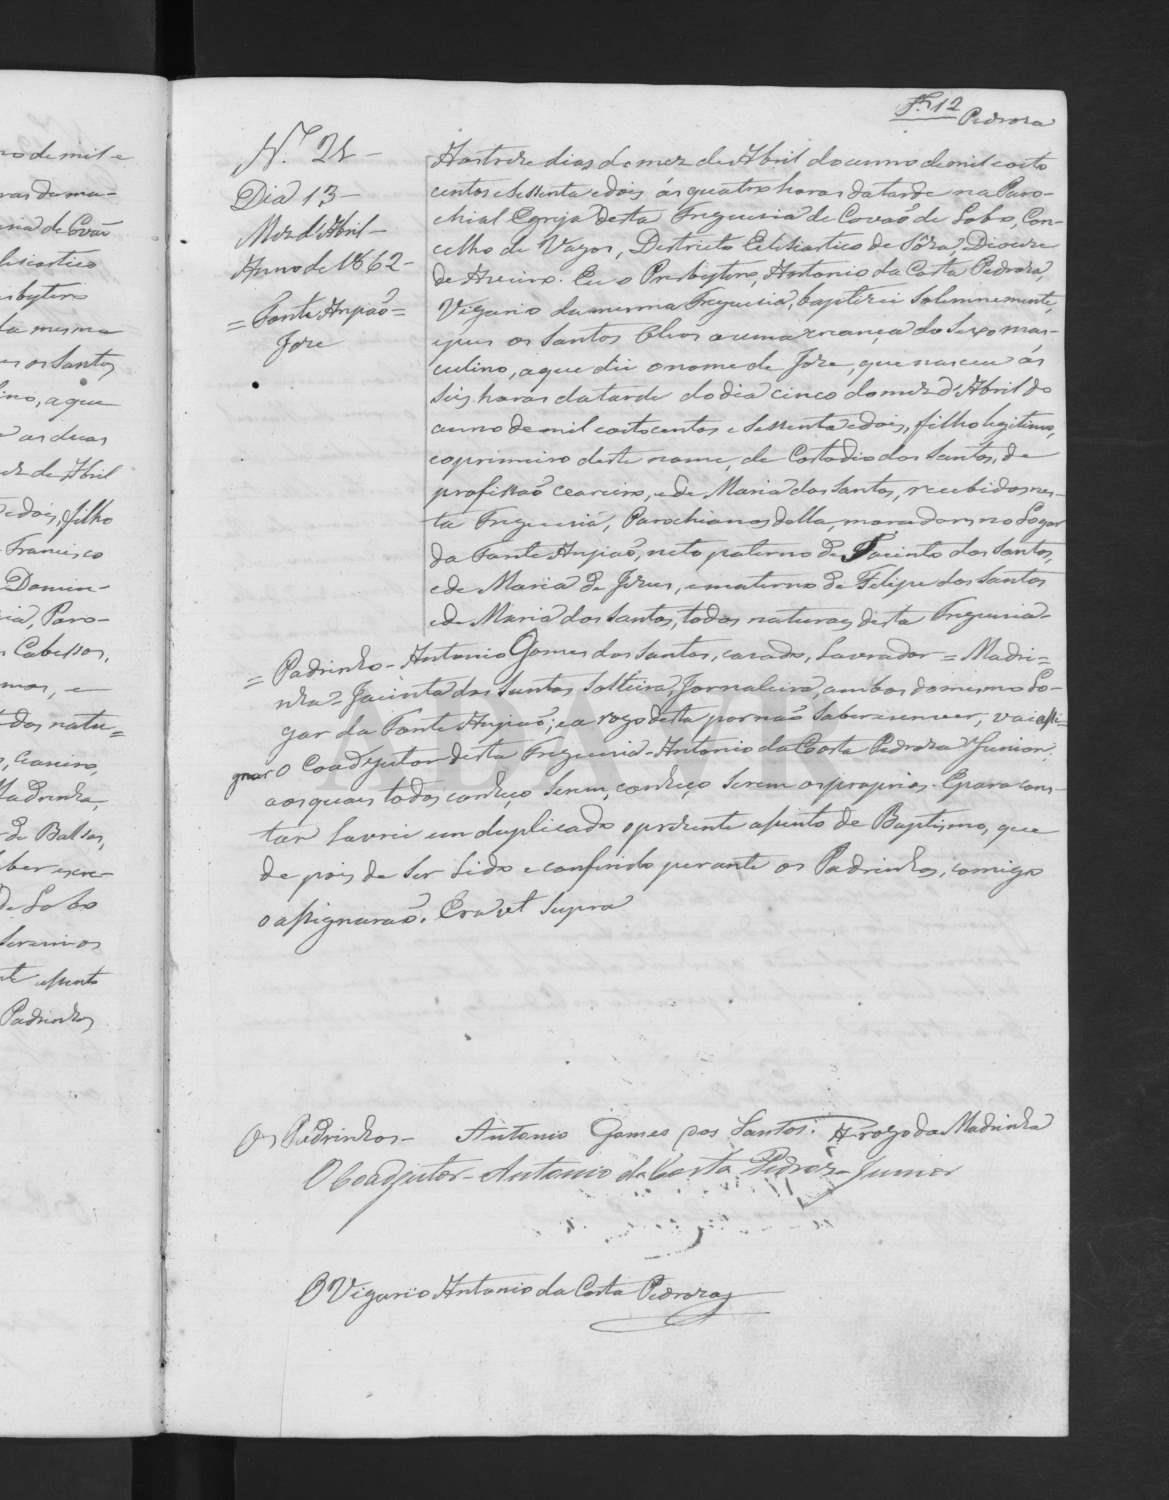 ro de mil e
ras da ma-
uia de Covão
lesiastico
sbytero
da mesma
es os Santos
lino, a que
as duas
ez de Abril
e dois, filho
Francisco
Domin-
ia, Paro-
Cabessos,
mos, e
dos natu=
, Ceareiro,
Madrinha,
de Balsas,
ber escre-
de Lobo
serem os
te assento
Padrinhos
Fl. 12
Pedroza
N.º 21 -
Dia 13 -
Mez d'Abril -
Anno de 1862 -
= Fonte Anpaõ =
Joze
Aos treze dias do mez de Abril do anno de mil e oito
centos e sessenta e dois ás quatro horas da tarde na Paro-
chial Egreja desta Freguezia de Covaõ de Lobo, Con-
celho de Vagos, Destricto Eclesiastico de Sôza, Diocese
de Aveiro. Eu o Presbytero, Antonio da Costa Pedroza,
Vigario da mesma Freguezia, baptizei solemnemente,
e puz os Santos Oleos a uma creança do sexo mas-
culino, a que dei o nome de Joze, que nasceu ás
seis horas da tarde do dia cinco do mez d'Abril do
anno de mil e oito centos e sessenta e dois, filho legitimo,
e o primeiro deste nome, de Costodio dos Santos, de
profissaõ ceareiro, e de Maria dos Santos, recebidos nes-
ta Freguezia, Parochianos della, moradores no Logar
da Fonte Anpiaõ, neto paterno de Jacinto dos Santos,
e de Maria de Jezus, e materno de Felipe dos Santos
e de Maria dos Santos, todos naturaes desta Freguezia -
= Padrinho - Antonio Gomes dos Santos, cazado, Lavrador = Madri=
nha = Jacinta dos Santos Solteira, Jornaleira, ambos do mesmo Lo-
gar da Fonte Anpiaõ; e a rogo desta por naõ saber escrever, vai assi-
gnar o Coadjutor desta Freguezia - Antonio da Costa Pedroza Junior,
aos quaes todos conheço serem, conheço serem os proprios. E para cons-
tar lavrei em duplicado o prezente assento de Baptismo, que
de pois de ser lido e conferido perante os Padrinhos, comigo
o assignaraõ. Era ut supra
Os Padrinhos - Antonio Gomes dos Santos. A rogo da Madrinha
O Coadjutor - Antonio da Costa Pedroza Junior
O Vigario Antonio da Costa Pedroza
ADAVR